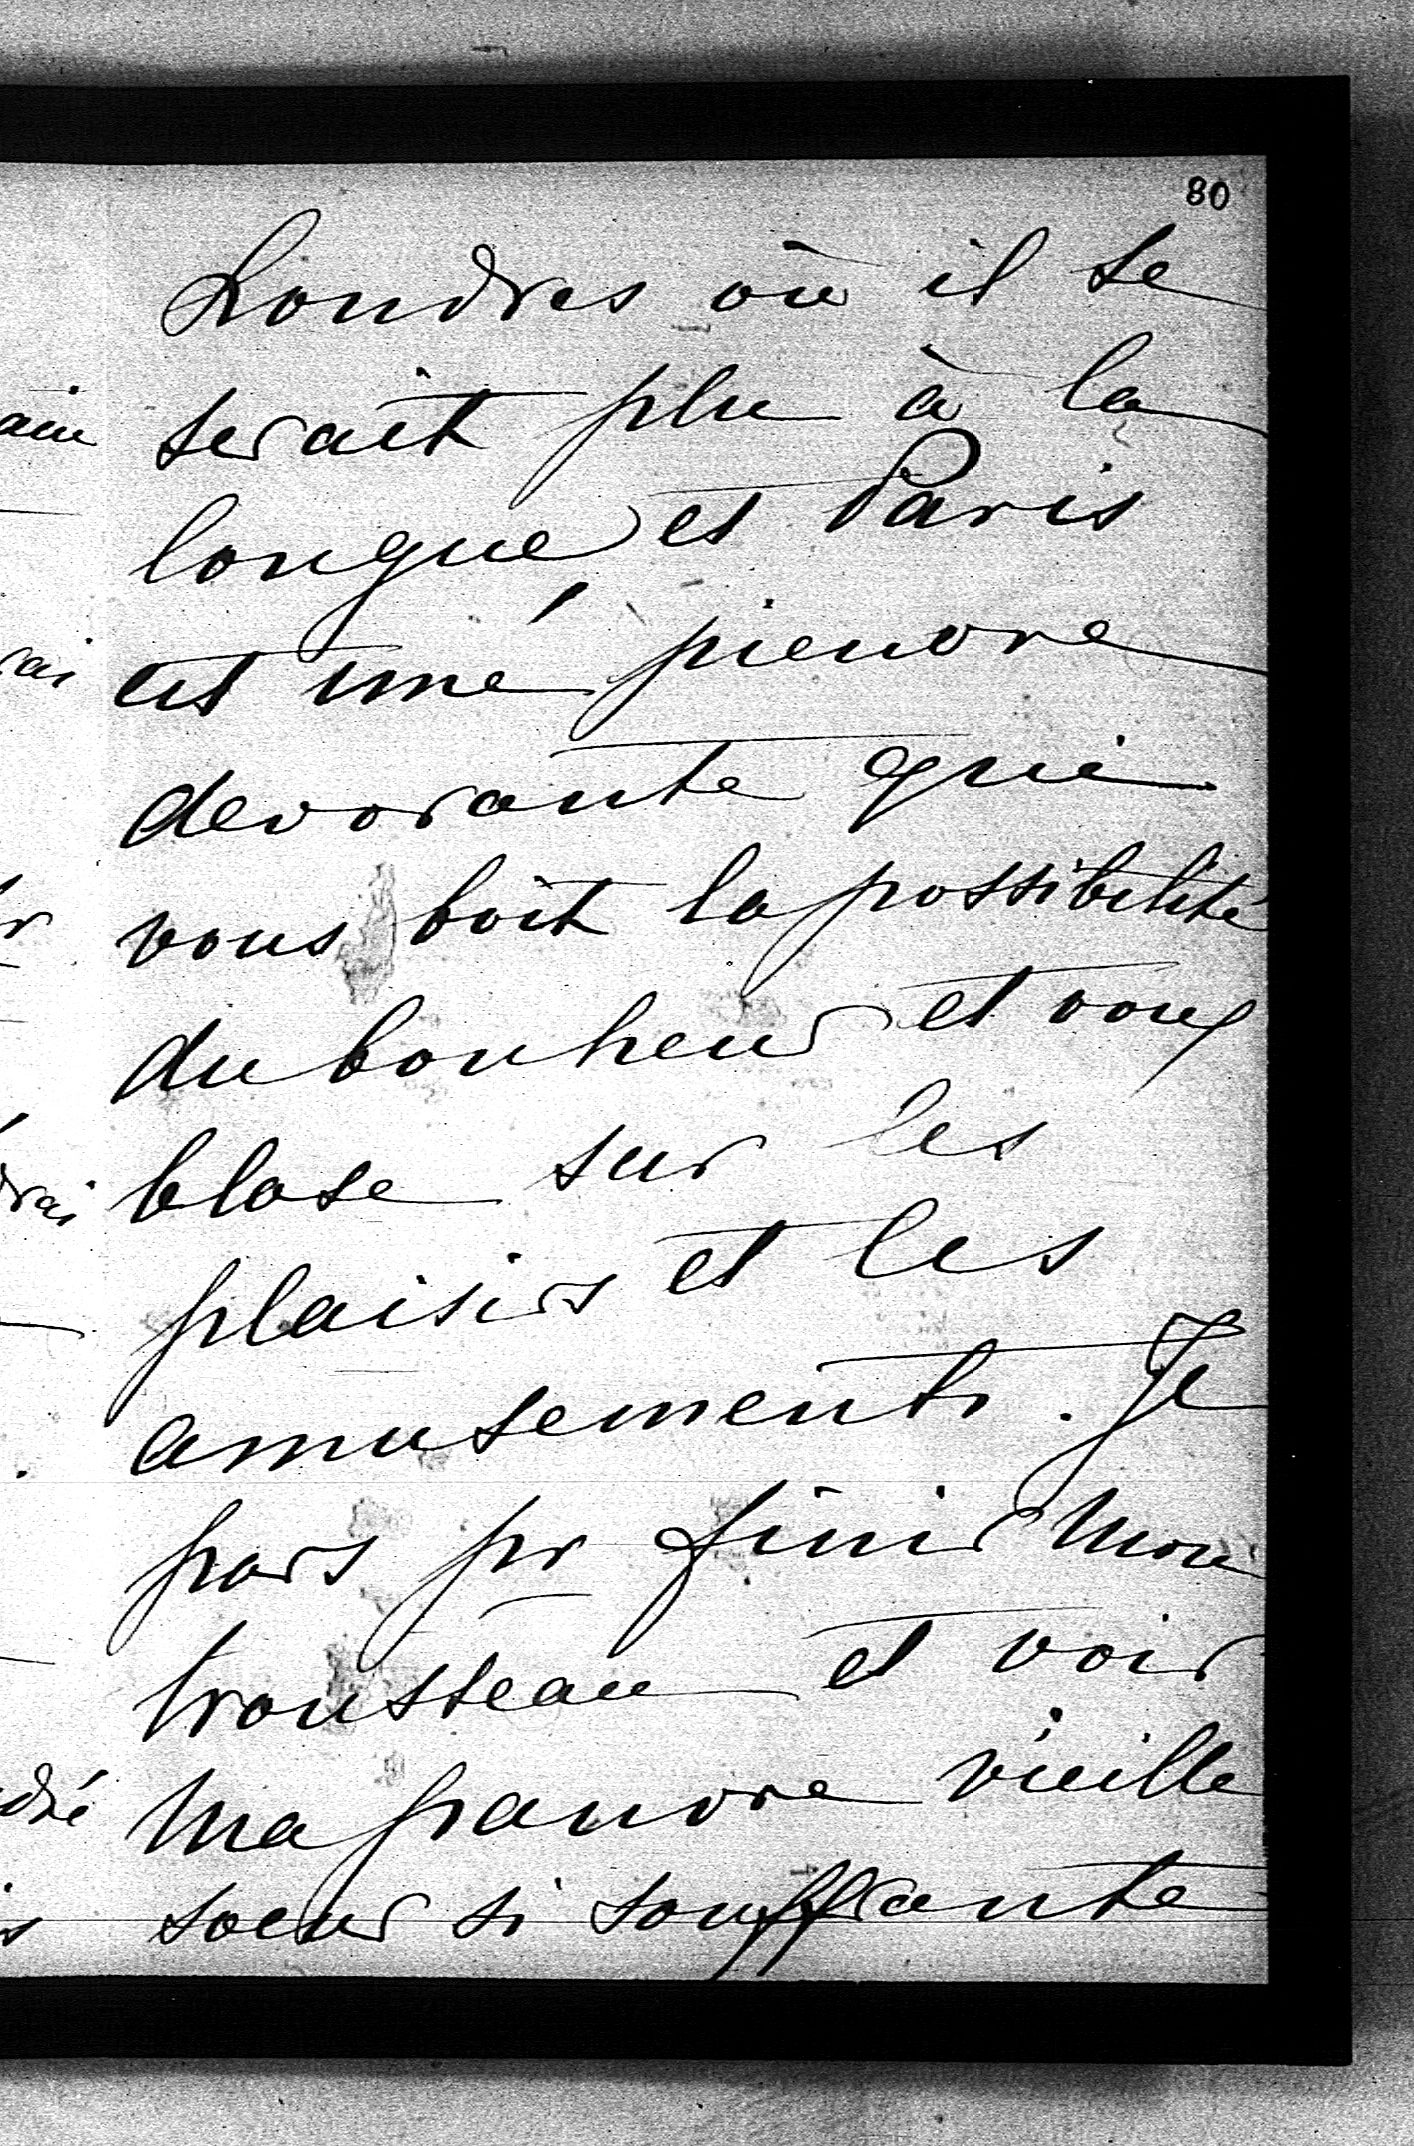 80
Londres où il se
serait plu à la
longue et Paris
est une pieuvre
devorante qui
vous boit la possibilité
du bonheur et vous
blase sur les
plaisirs et les
amusements. Je
pars pr finir mon
trousseau et voir
ma pauvre vieille
soeur si souffrante